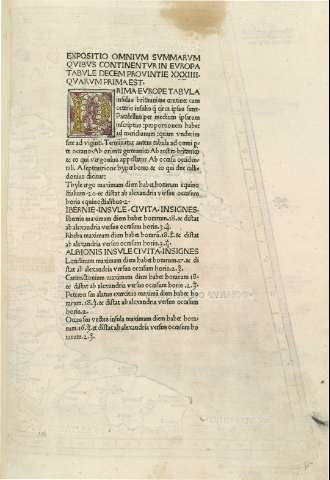 EXPOSITIO OMNIVM SVMMARVM
QVIBVS CONTINENTVR IN EVROPA
TABVLE DECEM PROVINTIE XXXIIII.
QVARVM PRIMA EST.
PRIMA EVROPE TABVLA
insulas britannias continet cum
ceteris insulis q̃ circa ipsas sunt.
Parallelus per medium ipsarum
inscriptus: proportionem habet
ad meridianum: quam undecim
ad uiginti. Terminatur autem tabula ab omni
te oceano. Ab oriente germanico Ab austro britanico
et eo qui uergonius appellatur Ab occasu occiden
tali. A septentrione hyperboreo & eo qui deu calli
donius dicitur:
Thyle ergo maximum diem habet horarum equino
ctialium.20.et distat ab alexandria uersus occasum
horis equinoctialibus.2.
IBERNIE INSVLE CIVITA. INSIGNES
Ibernis maximum diem habet horarum.18.et distat
ab alexandria uersus occasum horis.3.
Rheba maximum diem habet horarū.18. et distat
ab alexandria uersus occasum horis.3.
ALBIONIS INSVLE CIVITA. INSIGNES
Londinium maximum diem habet horarum et di
stat ab alexandria uersus occasum horis.2.
maximum diem habet horarum.18.
et distat ab alexandria uersus occasum horis.2.
alatus exercitus maximū diem habet ho
rarum.18. et distat ab alexandria uersus occasum
horis.2.
uectis insula maximum diem habet hora
rum.16. et distat ab alexandria uersus occasum ho
ris.2.